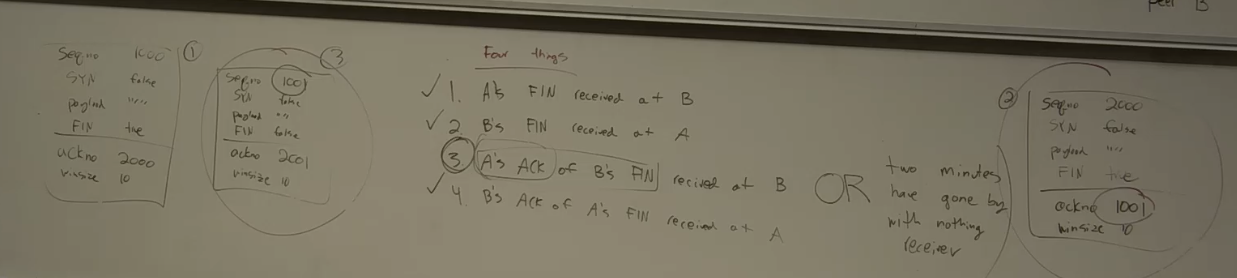 peer B
Seqno 1000 ①
SYN false
payload ""
FIN true
ackno 2000
winsize 10
③
Seqno 1001
SYN false
payload ""
FIN false
ackno 2001
winsize 10
Four things
✓ 1. A's FIN received at B
✓ 2. B's FIN received at A
③ A's ACK of B's FIN received at B
✓ 4. B's ACK of A's FIN received at A
OR
two minutes
have gone by
with nothing
receiver
②
Seqno 2000
SYN false
payload ""
FIN true
ackno 1001
winsize 10